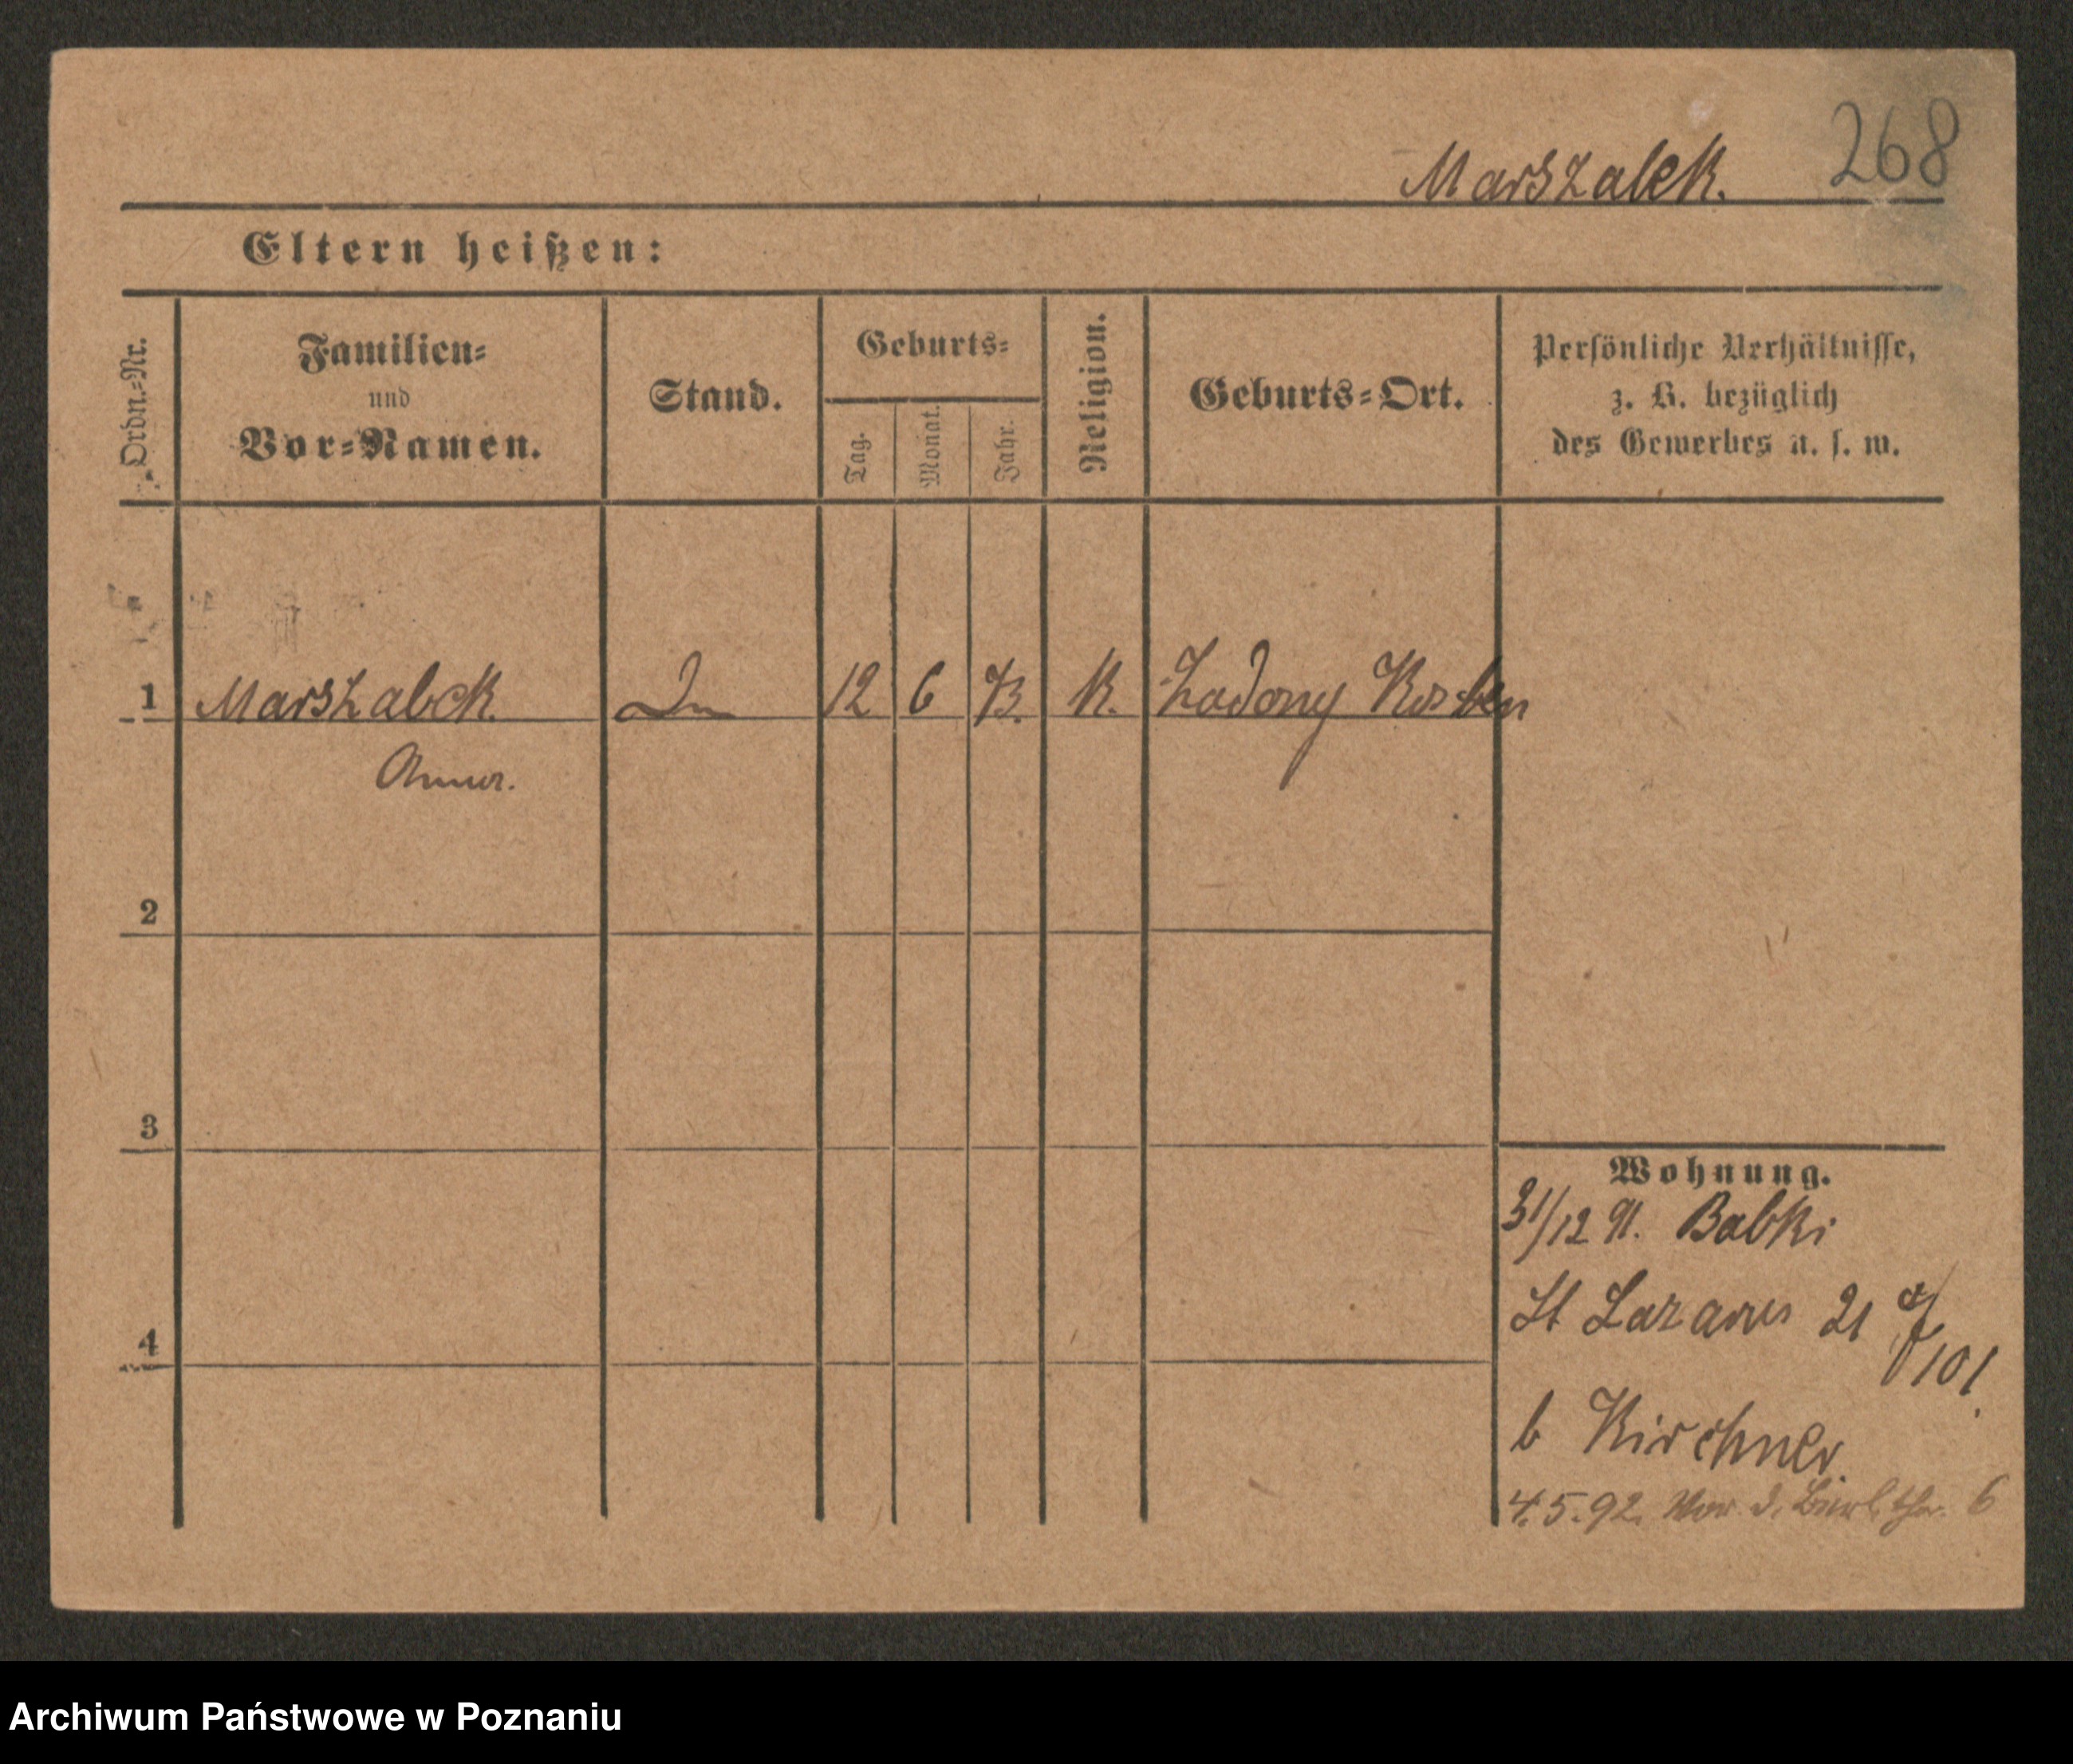 268
Marszalek.
Eltern heißen:
Ordn.-Nr.
Familien-
und
Vor-Namen.
Stand.
Geburts-
Tag.
Monat.
Jahr.
Religion.
Geburts-Ort.
Persönliche Verhältnisse,
z. B. bezüglich
des Gewerbes u. s. w.
1 Marszalek. 12 6 73. K. Zadory Kosten
Anna.
2
3
4
Wohnung.
31/12 91. Babki
St Lazarus 21
101
b Kirchner.
4.5.92. Vor d. Berl. thor. 6
Archiwum Państwowe w Poznaniu